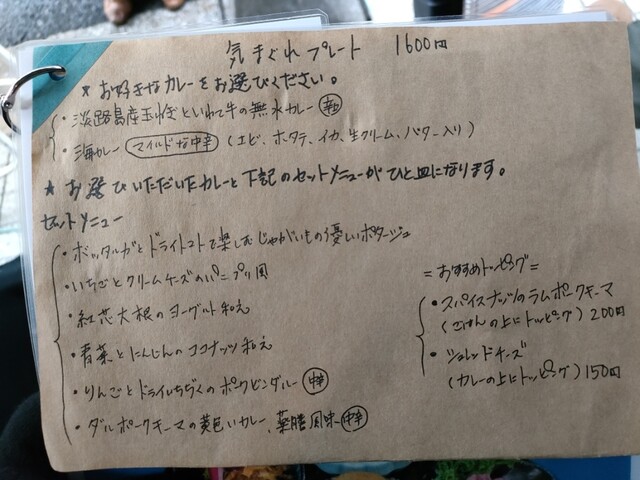 気まぐれプレート 1600円
★お好きなカレーをお選びください。
・淡路島産玉ねぎといわて牛の無水カレー 辛口
・海カレー マイルドな中辛 (エビ、ホタテ、イカ、生クリーム、バター入り)
★お選びいただいたカレーと下記のセットメニューがひと皿になります。
セットメニュー
・ボッタルガとドライトマトで楽しむじゃがいもの優しいポタージュ
・いちごとクリームチーズのパニプリ風
・紅芯大根のヨーグルト和え
・青菜とにんじんのココナッツ和え
・りんごとドライいちぢくのポークビンダルー 中辛
・ダルポークキーマの黄色いカレー、薬膳風味 中辛
=おすすめトッピング=
・スパイスナッツのラムポークキーマ
(ごはんの上にトッピング) 200円
・シュレッドチーズ
(カレーの上にトッピング) 150円